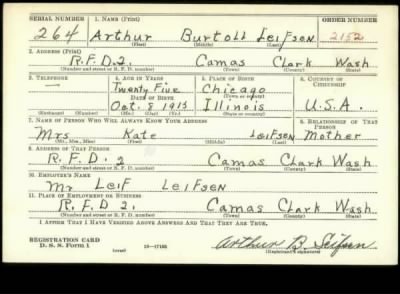 SERIAL NUMBER 1. NAME (Print) ORDER NUMBER
264 Arthur Burtoll Leifsen 2152
(First) (Middle) (Last)
2. ADDRESS (Print)
R.F.D. 2. Camas Clark Wash
(Number and street or R. F. D. number) (Town) (County) (State)
3. TELEPHONE 4. AGE IN YEARS 5. PLACE OF BIRTH 6. COUNTRY OF CITIZENSHIP
— Twenty Five Chicago
DATE OF BIRTH (Town or county)
Oct. 8 1915 Illinois U.S.A.
(Mo.) (Day) (Yr.) (State or country)
7. NAME OF PERSON WHO WILL ALWAYS KNOW YOUR ADDRESS 8. RELATIONSHIP OF THAT PERSON
Mrs Kate Leifsen Mother
(Mr., Mrs., Miss) (First) (Middle) (Last)
9. ADDRESS OF THAT PERSON
R.F.D. 2 Camas Clark Wash
(Number and street or R. F. D. number) (Town) (County) (State)
10. EMPLOYER'S NAME
Mr Leif Leifsen
11. PLACE OF EMPLOYMENT OR BUSINESS
R.F.D 2. Camas Clark Wash
(Number and street or R. F. D. number) (Town) (County) (State)
I AFFIRM THAT I HAVE VERIFIED ABOVE ANSWERS AND THAT THEY ARE TRUE.
REGISTRATION CARD
D. S. S. Form 1 (over) 16—17105 Arthur B. Leifsen
(Registrant's signature)